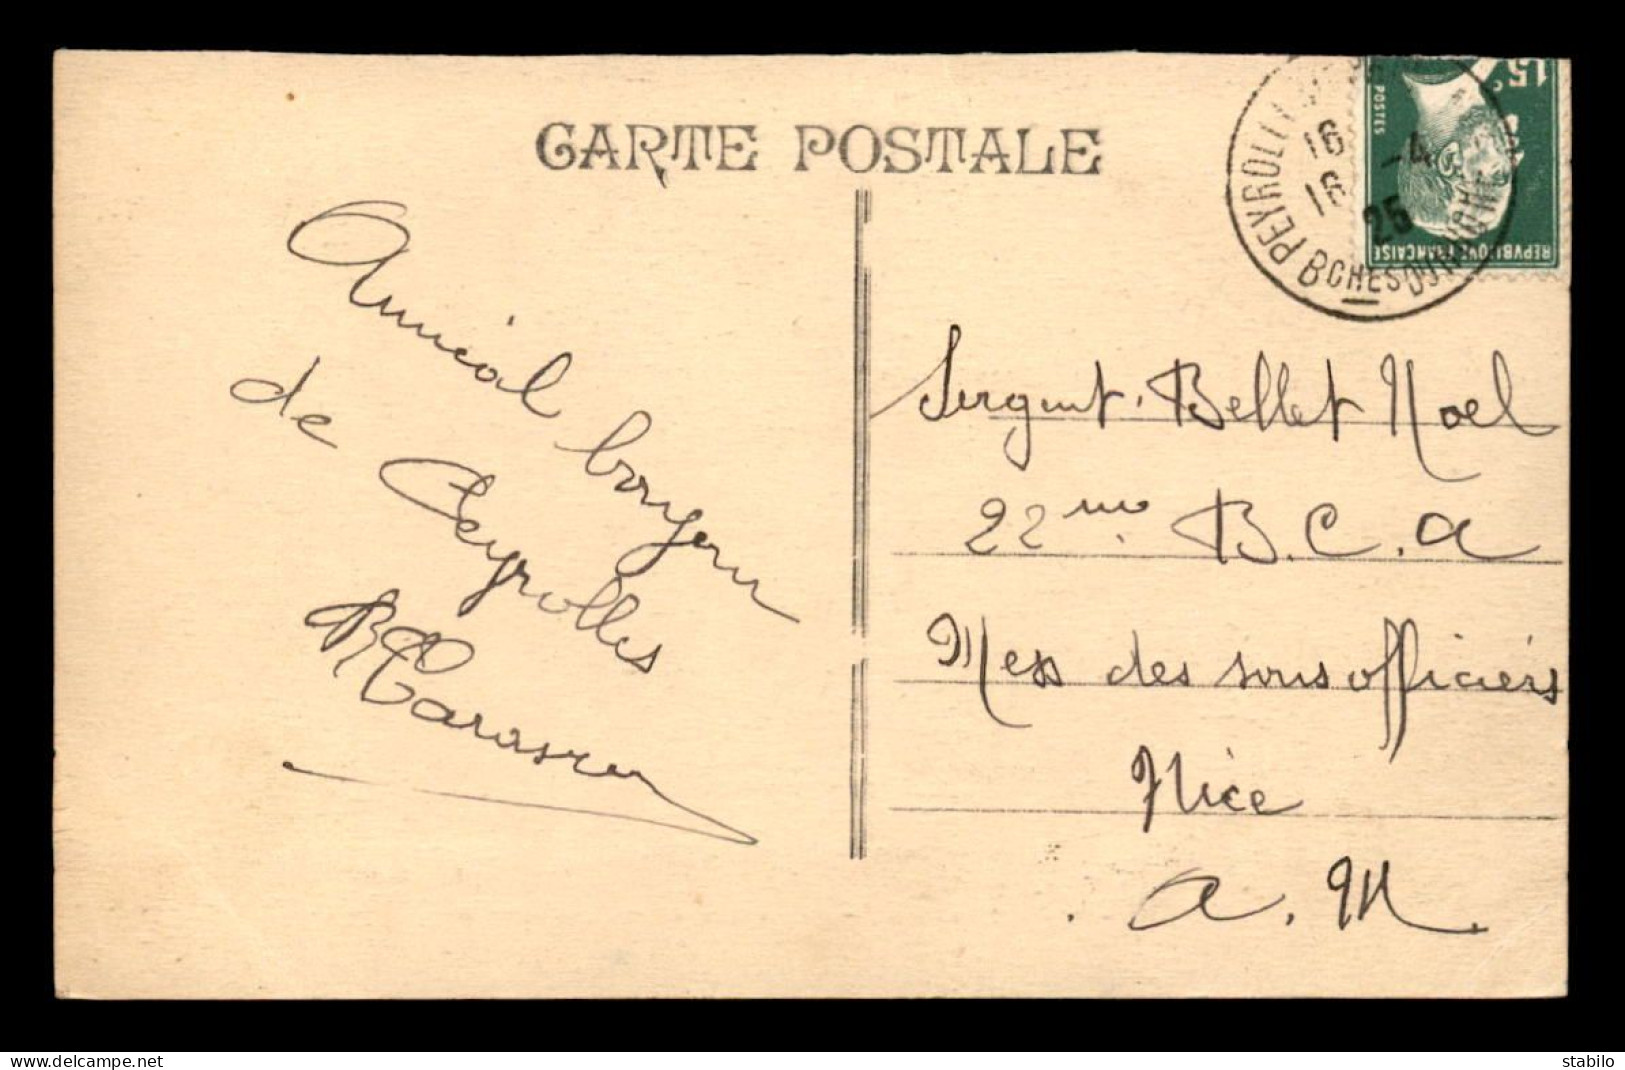 CARTE POSTALE
Amical bonjour
de Peyrolles
15c
POSTES
REPVBLIQVE FRANCAISE
PEYROLLES
16
16 -4
25
BCHES DU RHONE
Sergent. Bellet Noel
22 me B.C.A
Mess des sous officiers
Nice
A. M.
www.delcampe.net
stabilo